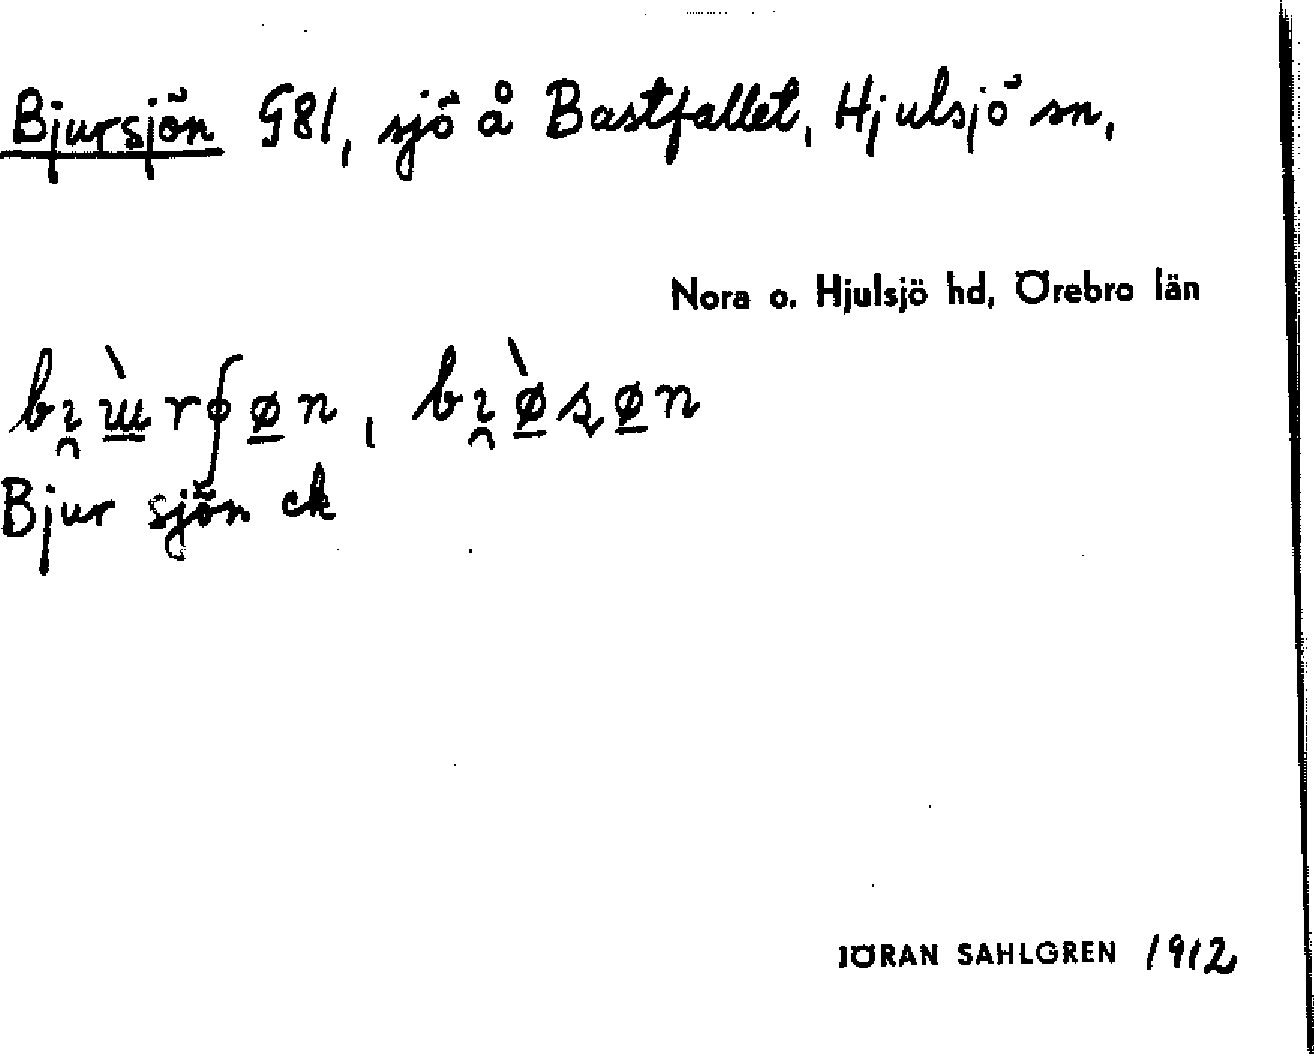 Bjursjön G81, sjö å Bastfallet, Hjulsjö sn,
Nora o. Hjulsjö hd, Örebro län
Bjur sjön ek
JÖRAN SAHLGREN 1912